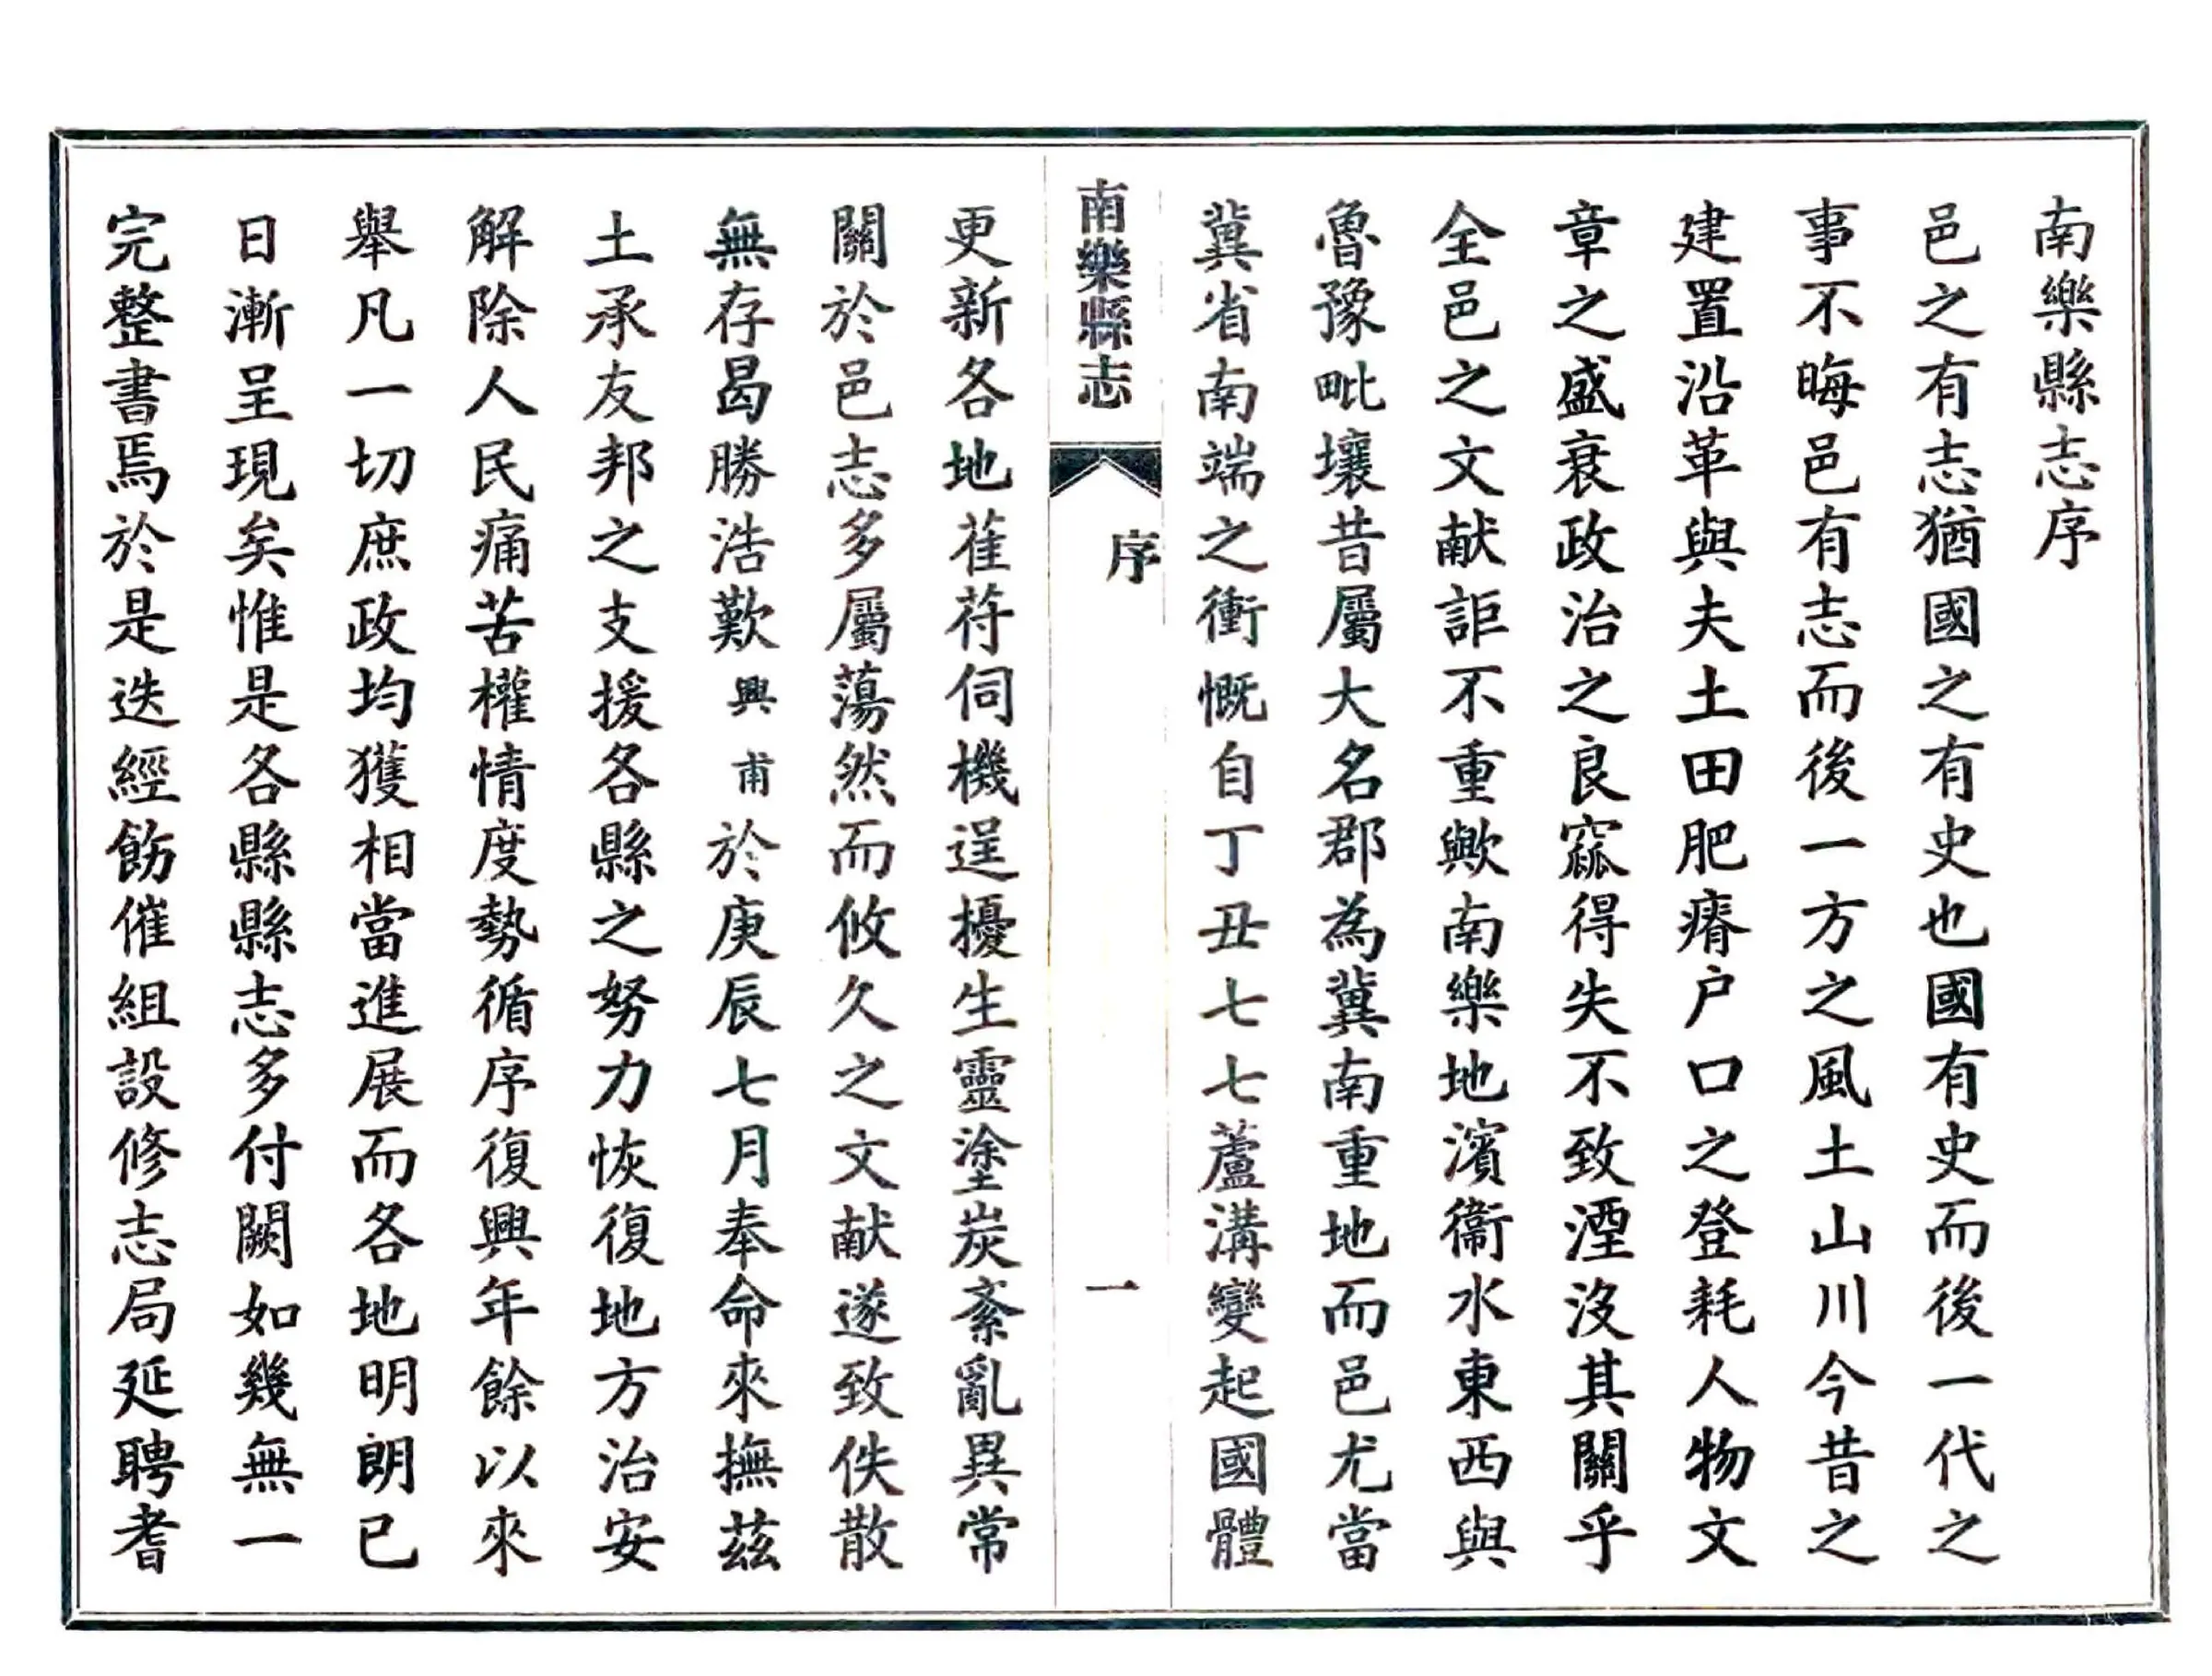 南樂縣志序
邑之有志猶國之有史也國有史而後一代之
事不晦邑有志而後一方之風土山川今昔之
建置沿革與夫土田肥瘠户口之登耗人物文
章之盛衰政治之良窳得失不致湮沒其關乎
全邑之文献詎不重歟南樂地濱衞水東西與
魯豫毗壤昔屬大名郡為冀南重地而邑尤當
冀省南端之衝慨自丁丑七七蘆溝變起國體
南樂縣志
序
一
更新各地萑苻伺機逞擾生靈塗炭紊亂異常
關於邑志多屬蕩然而攸久之文献遂致佚散
無存曷勝浩歎興甫於庚辰七月奉命來撫茲
土承友邦之支援各縣之努力恢復地方治安
解除人民痛苦權情度勢循序復興年餘以來
舉凡一切庶政均獲相當進展而各地明朗已
日漸呈現矣惟是各縣縣志多付闕如幾無一
完整書焉於是迭經飭催組設修志局延聘耆